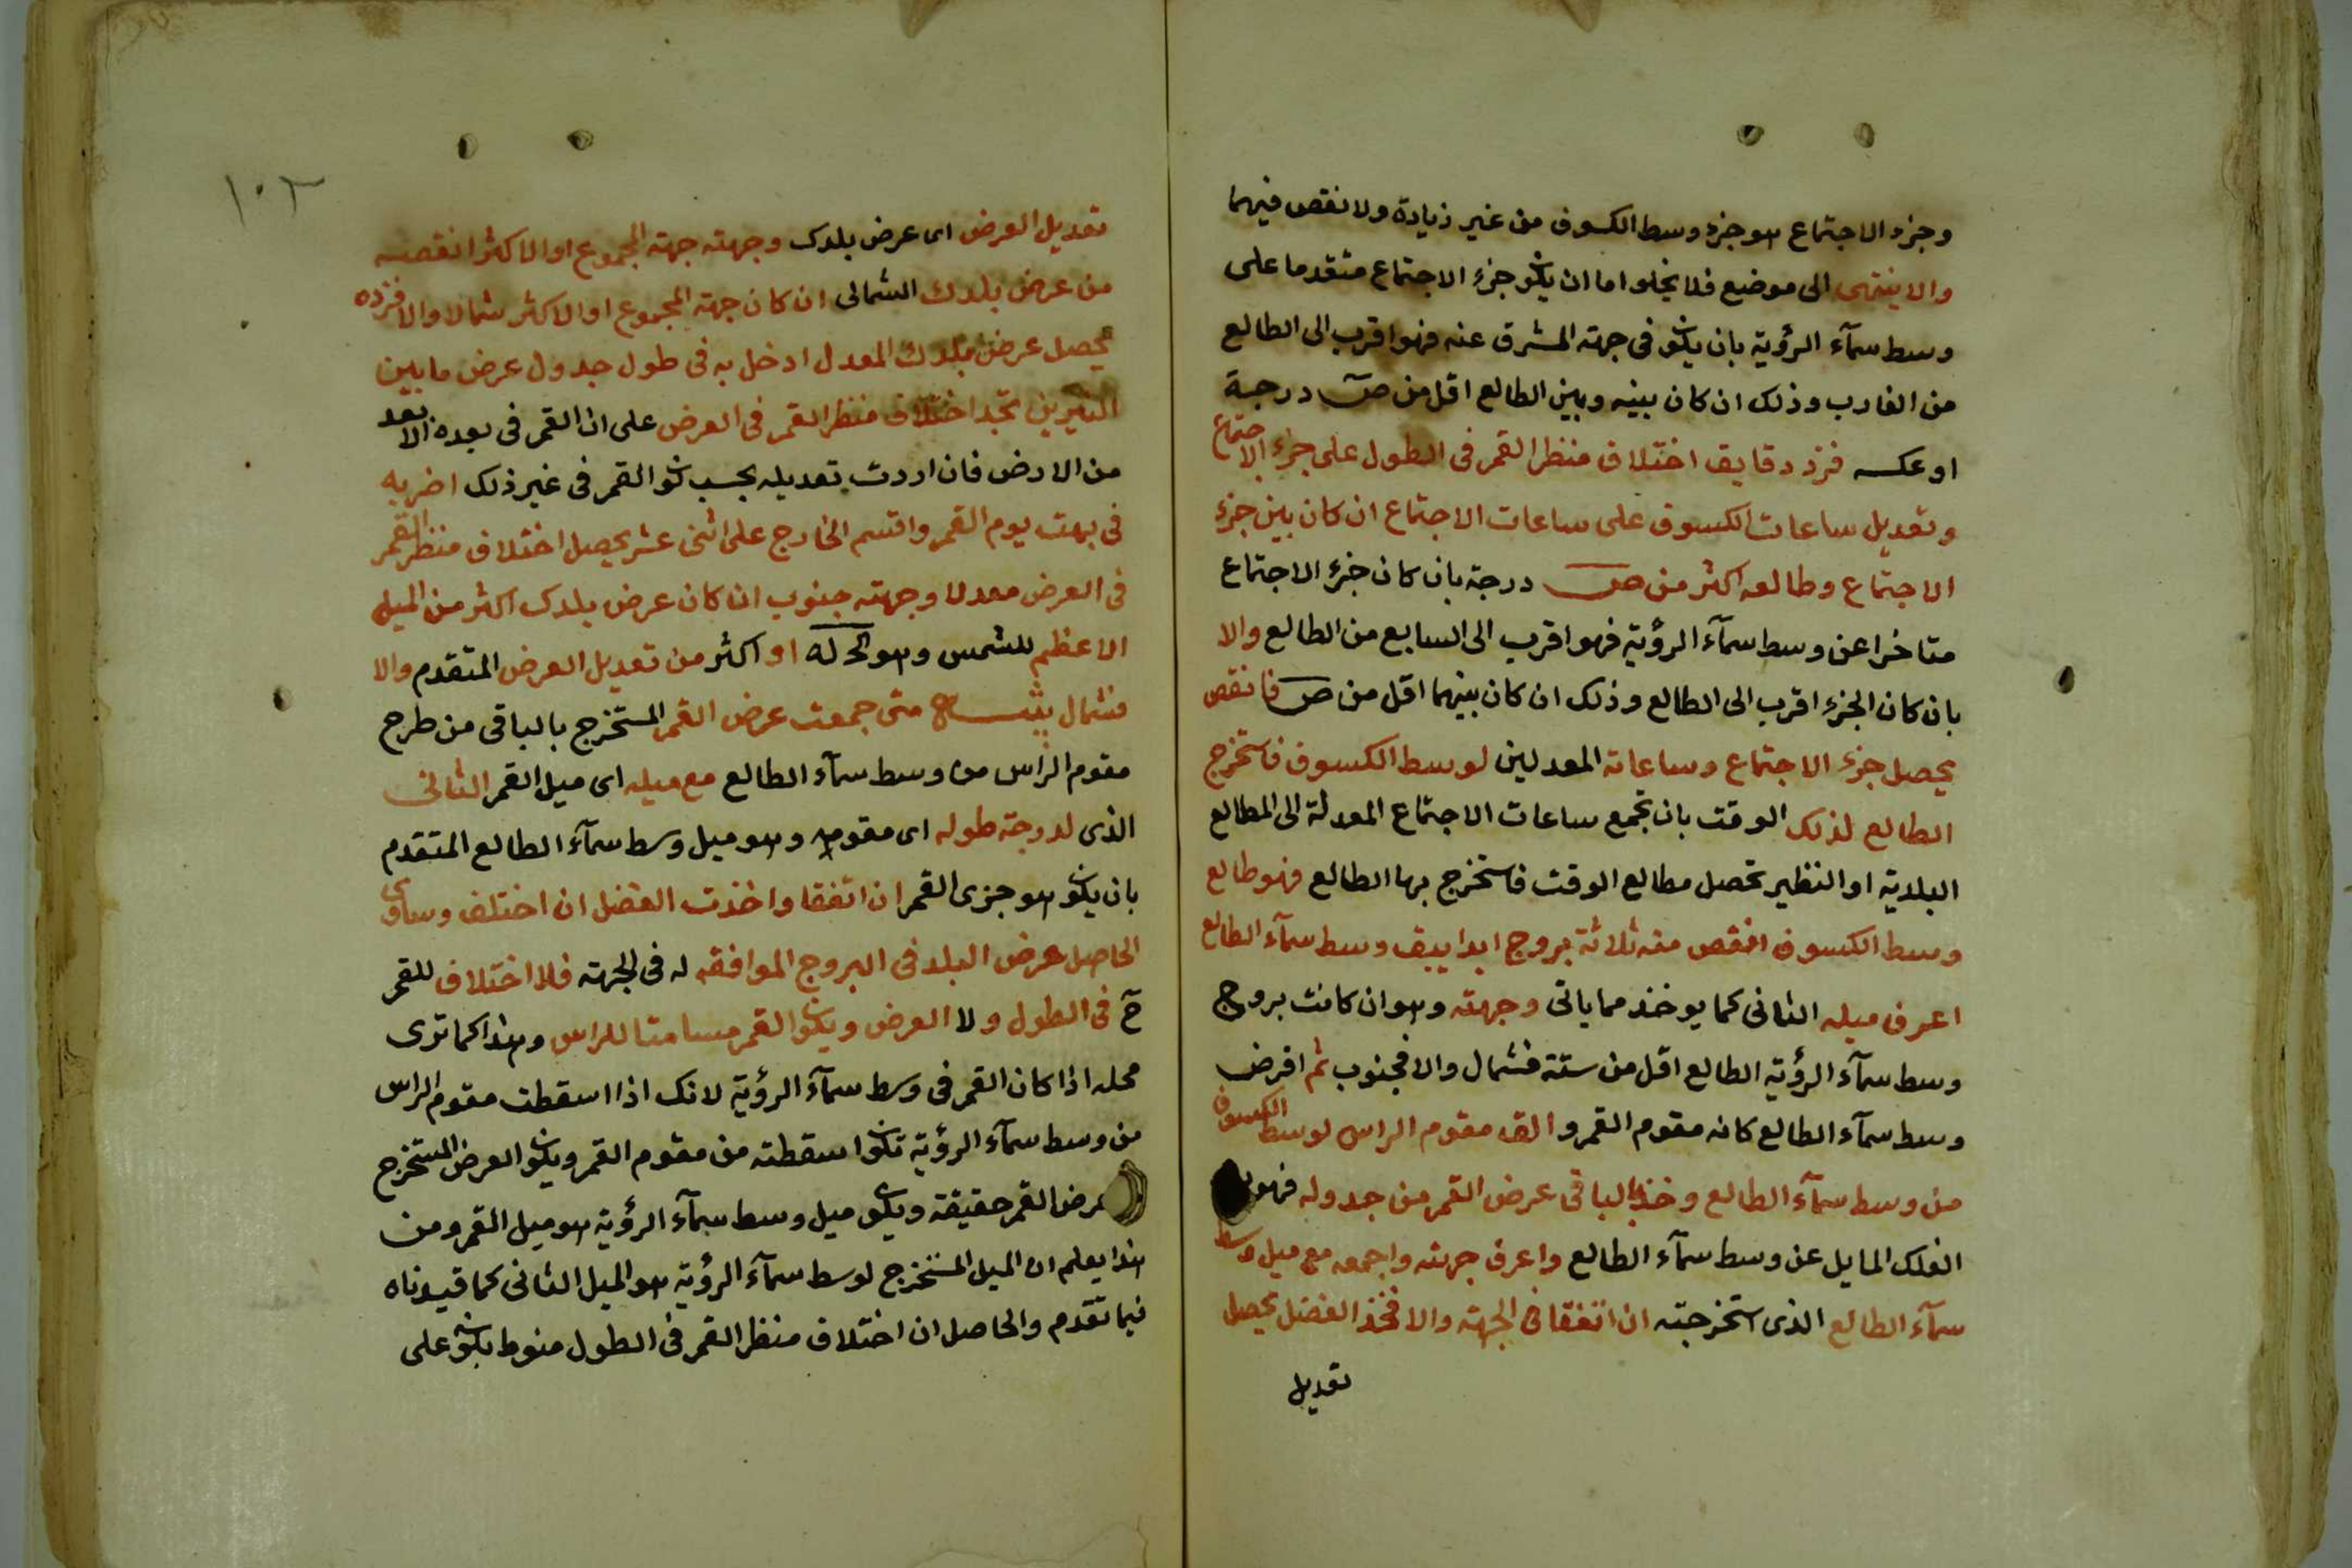 وجزء الاجتماع هو جزء وسط الكسوف من غير زيادة ولا نقص فيهما
والا ينتهى الى موضع فلا يخلو اما ان يكون جزء الاجتماع متقدما على
وسط سمآء الرؤية بان يكون فى جهة المشرق عنه فهو اقرب الى الطالع
من الغارب وذلك ان كان بينه وبين الطالع اقل من ص درجة
او عكسه فزد دقايق اختلاف منظر القمر فى الطول على جزء الاجتماع
وتعديل ساعات الكسوف على ساعات الاجتماع ان كان بين جزء
الاجتماع وطالعه اكثر من ص درجة بان كان جزء الاجتماع
متاخرا عن وسط سمآء الرؤية فهو اقرب الى السابع من الطالع والا
بان كان الجزء اقرب الى الطالع وذلك ان كان بينهما اقل من ص فانقص
يحصل جزء الاجتماع وساعاته المعدلين لوسط الكسوف فاستخرج
الطالع لذلك الوقت بان تجمع ساعات الاجتماع المعدلة الى المطالع
البلدية او النظير تحصل مطالع الوقت فاستخرج بها الطالع فهو طالع
وسط الكسوف انقص منه ثلاثة بروج ابدا يبق وسط سمآء الطالع
اعرف ميله الثانى كما يوخذ مما ياتى وجهته وهو ان كانت بروج
وسط سمآء الرؤية الطالع اقل من ستة فشمال والا فجنوب ثم افرض
وسط سمآء الطالع كانه مقوم القمر و الق مقوم الراس لوسط الكسوف
من وسط سمآء الطالع وخذ بالباقى عرض القمر من جدوله فهو
الفلك المايل عن وسط سمآء الطالع واعرف جهته واجمعه مع ميل وسط
سمآء الطالع الذى استخرجته ان اتفقا فى الجهة والا فخذ الفضل يحصل
تعديل
١٠٢
تعديل العرض اى عرض بلدك وجهته جهة المجموع او الاكثر انقصه
من عرض بلدك الشمالى ان كان جهة المجموع او الاكثر شمالا والا فزده
يحصل عرض بلدك المعدل ادخل به فى طول جدول عرض ما بين
النيرين تجد اختلاف منظر القمر فى العرض على ان القمر فى بعده الابعد
من الارض فان اردت تعديله بحسب كون القمر فى غير ذلك اضربه
فى بهت يوم القمر واقسم الخارج على اثنى عشر يحصل اختلاف منظر القمر
فى العرض معدلا وجهته جنوب ان كان عرض بلدك اكثر من الميل
الاعظم للشمس وهو او اكثر من تعديل العرض المتقدم والا
فشمال متى جمعت عرض القمر المستخرج بالباقى من طرح
مقوم الراس من وسط سمآء الطالع مع ميله اى ميل القمر الثانى
الذى لدرجة طوله اى مقومه وهو ميل وسط سمآء الطالع المتقدم
بان يكون هو جزى القمر ان اتفقا واخذت الفضل ان اختلف وساوى
الحاصل عرض البلد فى البروج الموافقه له فى الجهة فلا اختلاف للقمر
ح فى الطول ولا العرض ويكون القمر مسامتا للراس وهذا كما ترى
محله اذا كان القمر فى وسط سمآء الرؤية لانك اذا اسقطت مقوم الراس
من وسط سمآء الرؤية تكون اسقطته من مقوم القمر ويكون العرض المستخرج
عرض القمر حقيقة ويكون ميل وسط سمآء الرؤية هو ميل القمر ومن
هذا يعلم ان الميل المستخرج لوسط سمآء الرؤية هو الميل الثانى كما قيدناه
فيما تقدم والحاصل ان اختلاف منظر القمر فى الطول منوط بكونه على